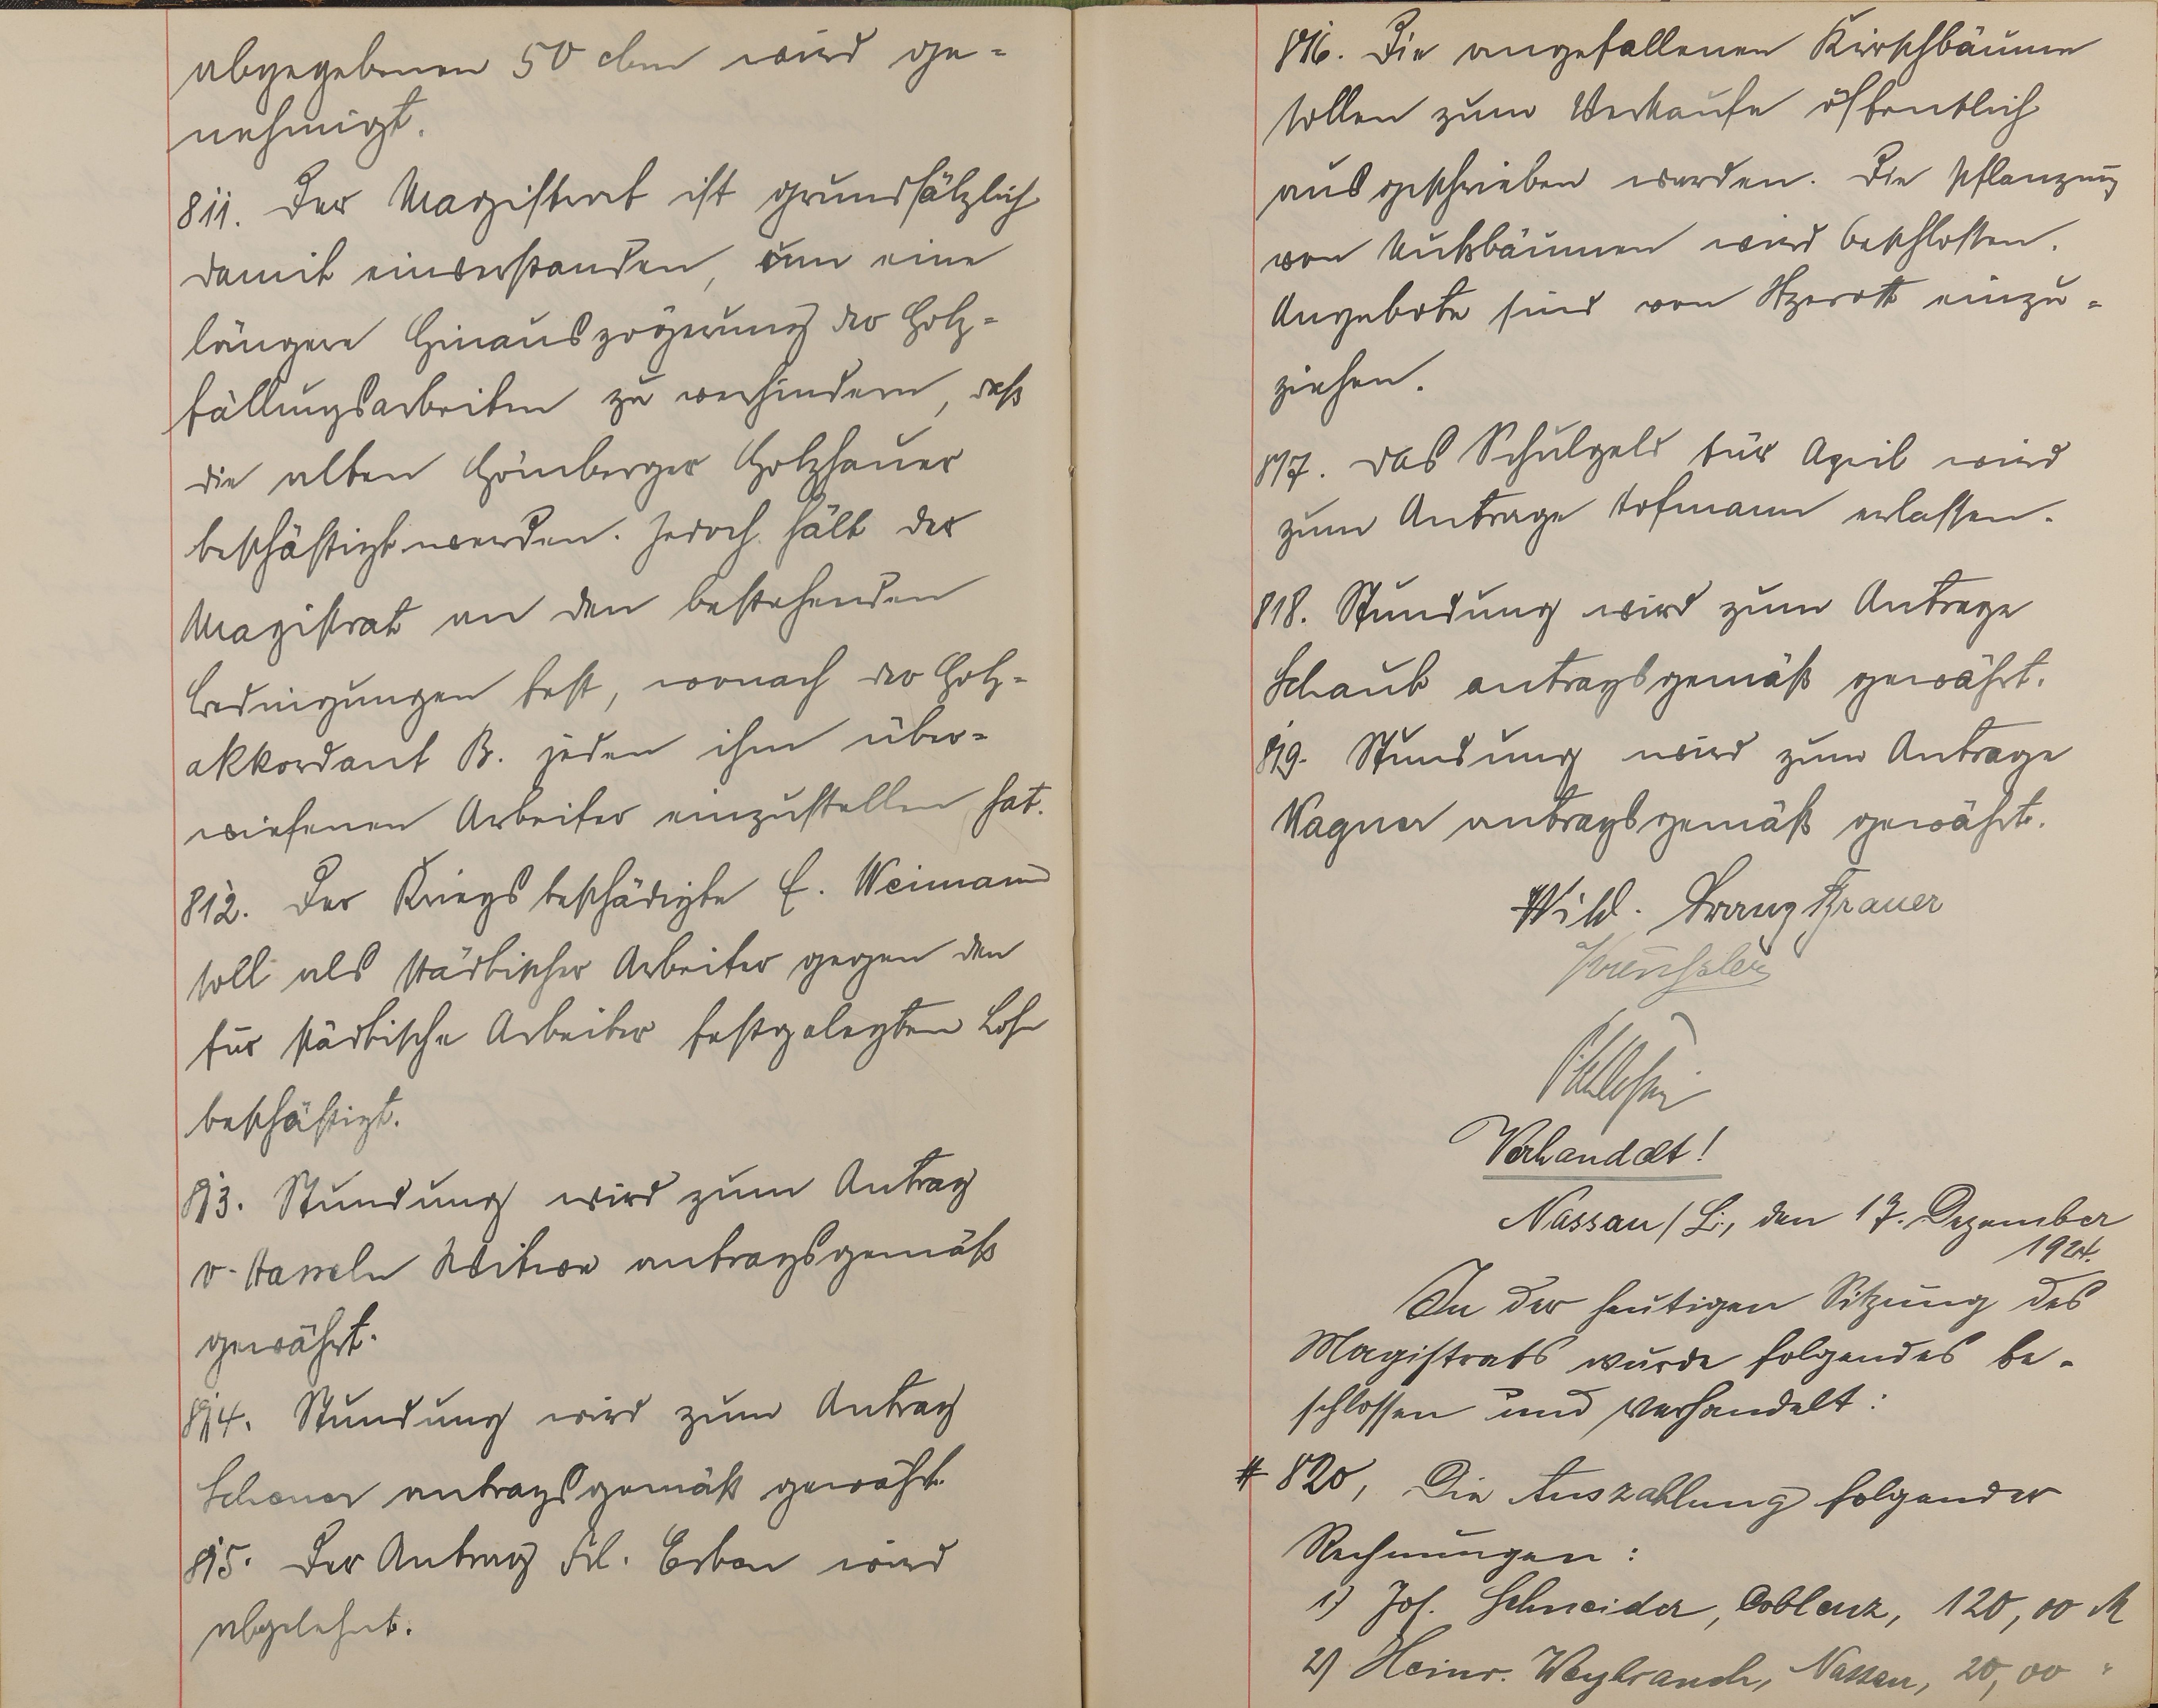 abgegebenen 50 cbm wird ge-
nehmigt.
811. Der Magistrat ist grundsätzlich
damit einverstanden, um eine
längere Hinauszögerung der Holz-
fällungsarbeiten zu verhindern, daß
die alten Hömberger Holzhauer
beschäftigt werden. Jedoch hält der
Magistrat an den bestehenden
Bedingungen fest, wonach der Holz-
akkordant B. jeden ihm über-
wiesenen Arbeiter einzustellen hat.
812. Der Kriegsbeschädigte E. Weimann
soll als städtischer Arbeiter gegen den
für städtische Arbeiter festgelegten Lohn
beschäftigt.
813. Stundung wird zum Antrag
v. Hasseln Witwe antragsgemäß
gewährt.
814. Stundung wird zum Antrag
Scheuer antragsgemäß gewährt.
815. Der Antrag Frl. Erben wird
abgelehnt.
816. Die angefallenen Kirschbäume
sollen zum Verkaufe öffentlich
ausgeschrieben werden. Die Pflanzung
von Nußbäumen wird beschlossen.
Angebote sind von einzu-
ziehen.
817. Das Schulgeld für April wird
zum Antrage Hofmann erlassen.
818. Stundung wird zum Antrage
Schaub antragsgemäß gewährt.
819. Stundung wird zum Antrage
Wagner antragsgemäß gewährt.
Wild. Franz Brauer
Verhandelt!
Nassau/L., den 17. Dezember
1924.
In der heutigen Sitzung des
Magistrats wurde folgendes be-
schlossen und verhandelt:
# 820, Die Auszahlung folgender
Rechnungen:
1) Jos. Schneider, Coblenz, 120,00 M
2) Heinr. Weybrauch, Nassau, 20,00 "